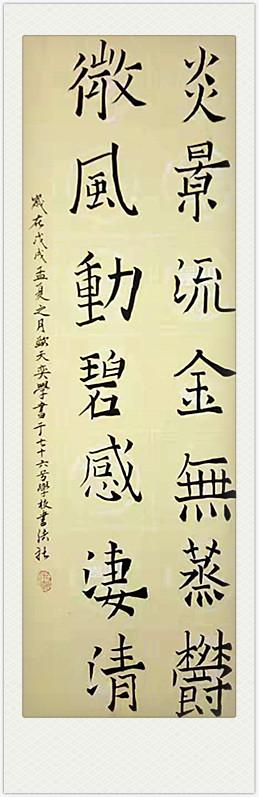 炎景流金無蒸欝
微風動碧感淒清
歲在戊戌孟夏之月天奕學書于七十六号學校書法社